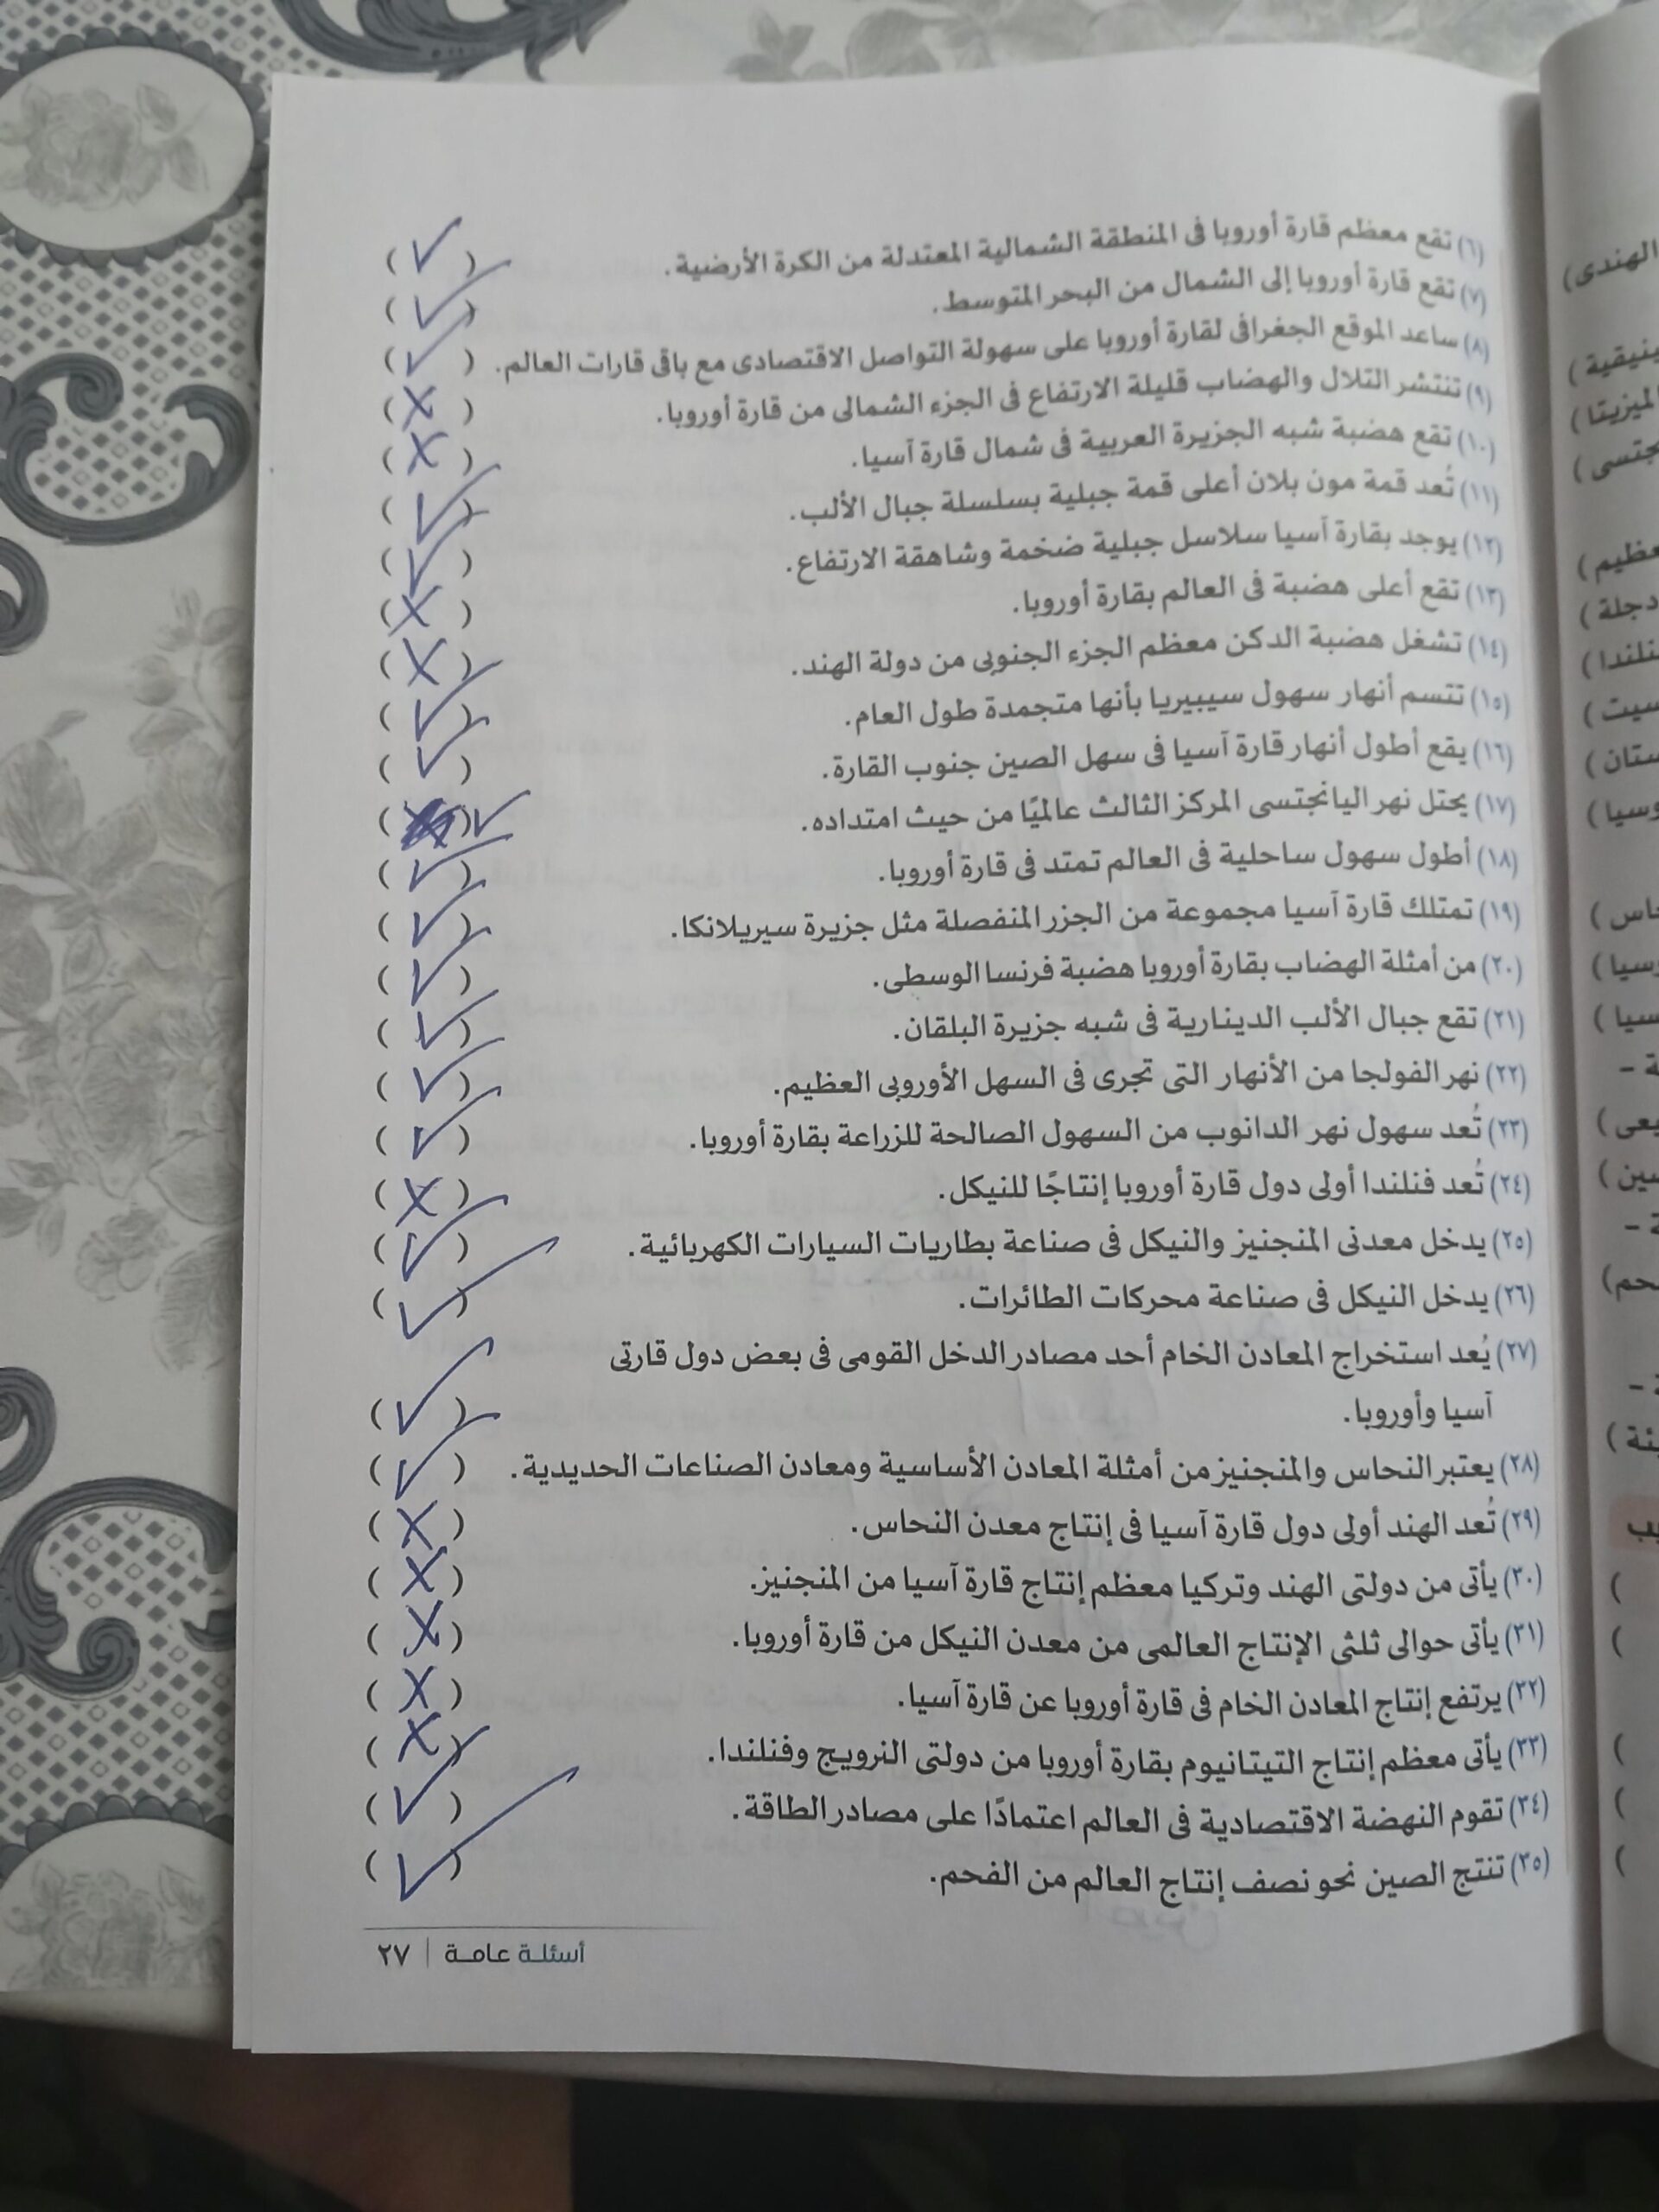 (٦) تقع معظم قارة أوروبا فى المنطقة الشمالية المعتدلة من الكرة الأرضية. ( ✓ )
(٧) تقع قارة أوروبا إلى الشمال من البحر المتوسط. ( ✓ )
(٨) ساعد الموقع الجغرافى لقارة أوروبا على سهولة التواصل الاقتصادى مع باقى قارات العالم. ( ✓ )
(٩) تنتشر التلال والهضاب قليلة الارتفاع فى الجزء الشمالى من قارة أوروبا. ( X )
(١٠) تقع هضبة شبه الجزيرة العربية فى شمال قارة آسيا. ( X )
(١١) تُعد قمة مون بلان أعلى قمة جبلية بسلسلة جبال الألب. ( ✓ )
(١٢) يوجد بقارة آسيا سلاسل جبلية ضخمة وشاهقة الارتفاع. ( ✓ )
(١٣) تقع أعلى هضبة فى العالم بقارة أوروبا. ( X )
(١٤) تشغل هضبة الدكن معظم الجزء الجنوبى من دولة الهند. ( X )
(١٥) تتسم أنهار سهول سيبيريا بأنها متجمدة طول العام. ( ✓ )
(١٦) يقع أطول أنهار قارة آسيا فى سهل الصين جنوب القارة. ( ✓ )
(١٧) يحتل نهر اليانجتسى المركز الثالث عالميًا من حيث امتداده. ( ) ✓
(١٨) أطول سهول ساحلية فى العالم تمتد فى قارة أوروبا. ( ✓ )
(١٩) تمتلك قارة آسيا مجموعة من الجزر المنفصلة مثل جزيرة سيريلانكا. ( ✓ )
(٢٠) من أمثلة الهضاب بقارة أوروبا هضبة فرنسا الوسطى. ( ✓ )
(٢١) تقع جبال الألب الدينارية فى شبه جزيرة البلقان. ( ✓ )
(٢٢) نهر الفولجا من الأنهار التى تجرى فى السهل الأوروبى العظيم. ( ✓ )
(٢٣) تُعد سهول نهر الدانوب من السهول الصالحة للزراعة بقارة أوروبا. ( ✓ )
(٢٤) تُعد فنلندا أولى دول قارة أوروبا إنتاجًا للنيكل. ( X )
(٢٥) يدخل معدنى المنجنيز والنيكل فى صناعة بطاريات السيارات الكهربائية. ( ✓ )
(٢٦) يدخل النيكل فى صناعة محركات الطائرات. ( ✓ )
(٢٧) يُعد استخراج المعادن الخام أحد مصادر الدخل القومى فى بعض دول قارتى
آسيا وأوروبا. ( ✓ )
(٢٨) يعتبر النحاس والمنجنيز من أمثلة المعادن الأساسية ومعادن الصناعات الحديدية. ( ✓ )
(٢٩) تُعد الهند أولى دول قارة آسيا فى إنتاج معدن النحاس. ( X )
(٣٠) يأتى من دولتى الهند وتركيا معظم إنتاج قارة آسيا من المنجنيز. ( X )
(٣١) يأتى حوالى ثلثى الإنتاج العالمى من معدن النيكل من قارة أوروبا. ( X )
(٣٢) يرتفع إنتاج المعادن الخام فى قارة أوروبا عن قارة آسيا. ( X )
(٣٣) يأتى معظم إنتاج التيتانيوم بقارة أوروبا من دولتى النرويج وفنلندا. ( X )
(٣٤) تقوم النهضة الاقتصادية فى العالم اعتمادًا على مصادر الطاقة. ( ✓ )
(٣٥) تنتج الصين نحو نصف إنتاج العالم من الفحم. ( ✓ )
أسئلة عامة | ٢٧
الهندى)
دجلة)